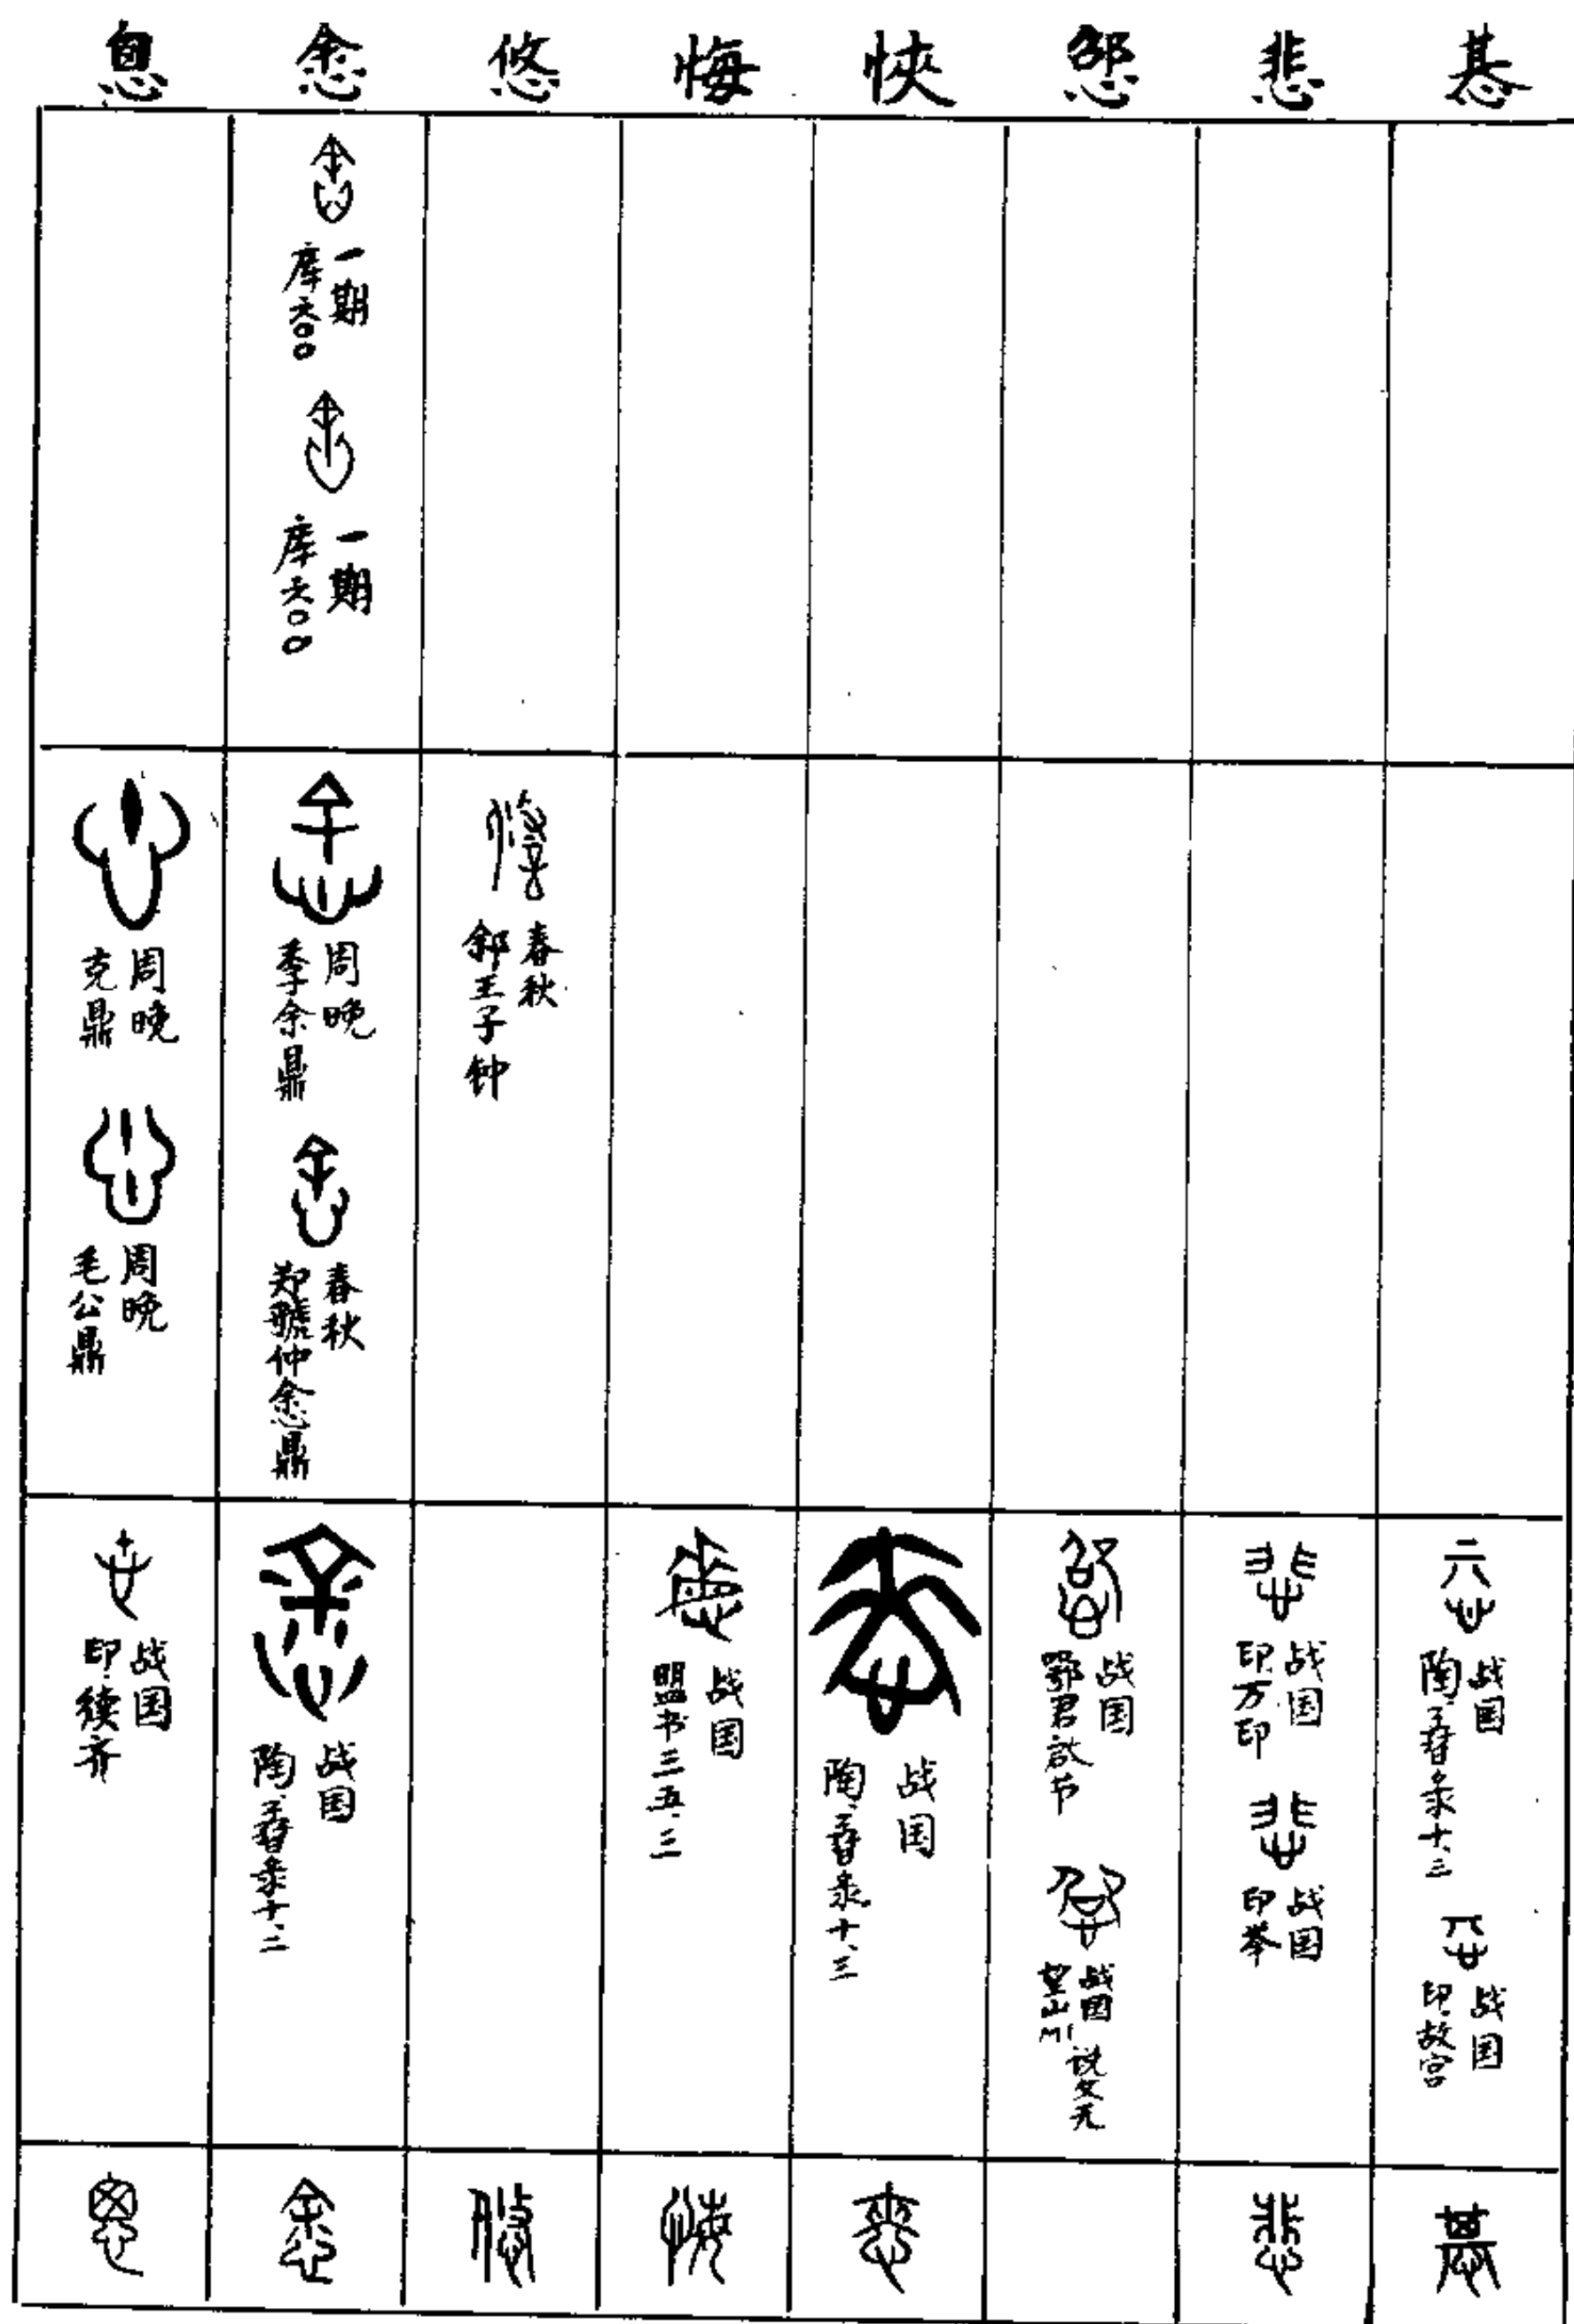 悤 悆 悠 悔 悏 惡 悲 惎
一期
库六〇〇
一期
库六〇〇
周晚
克鼎
周晚
毛公鼎
周晚
季余鼎
春秋
郑虢仲悆鼎
春秋
郐王子钟
战国
印续齐
战国
陶𦤃录十.二
战国
盟书三五.三
战国
陶𦤃录十.三
战国
鄂君启节
战国
望山M1
说文无
战国
印.方印
战国
印举
战国
战国
印.故宫